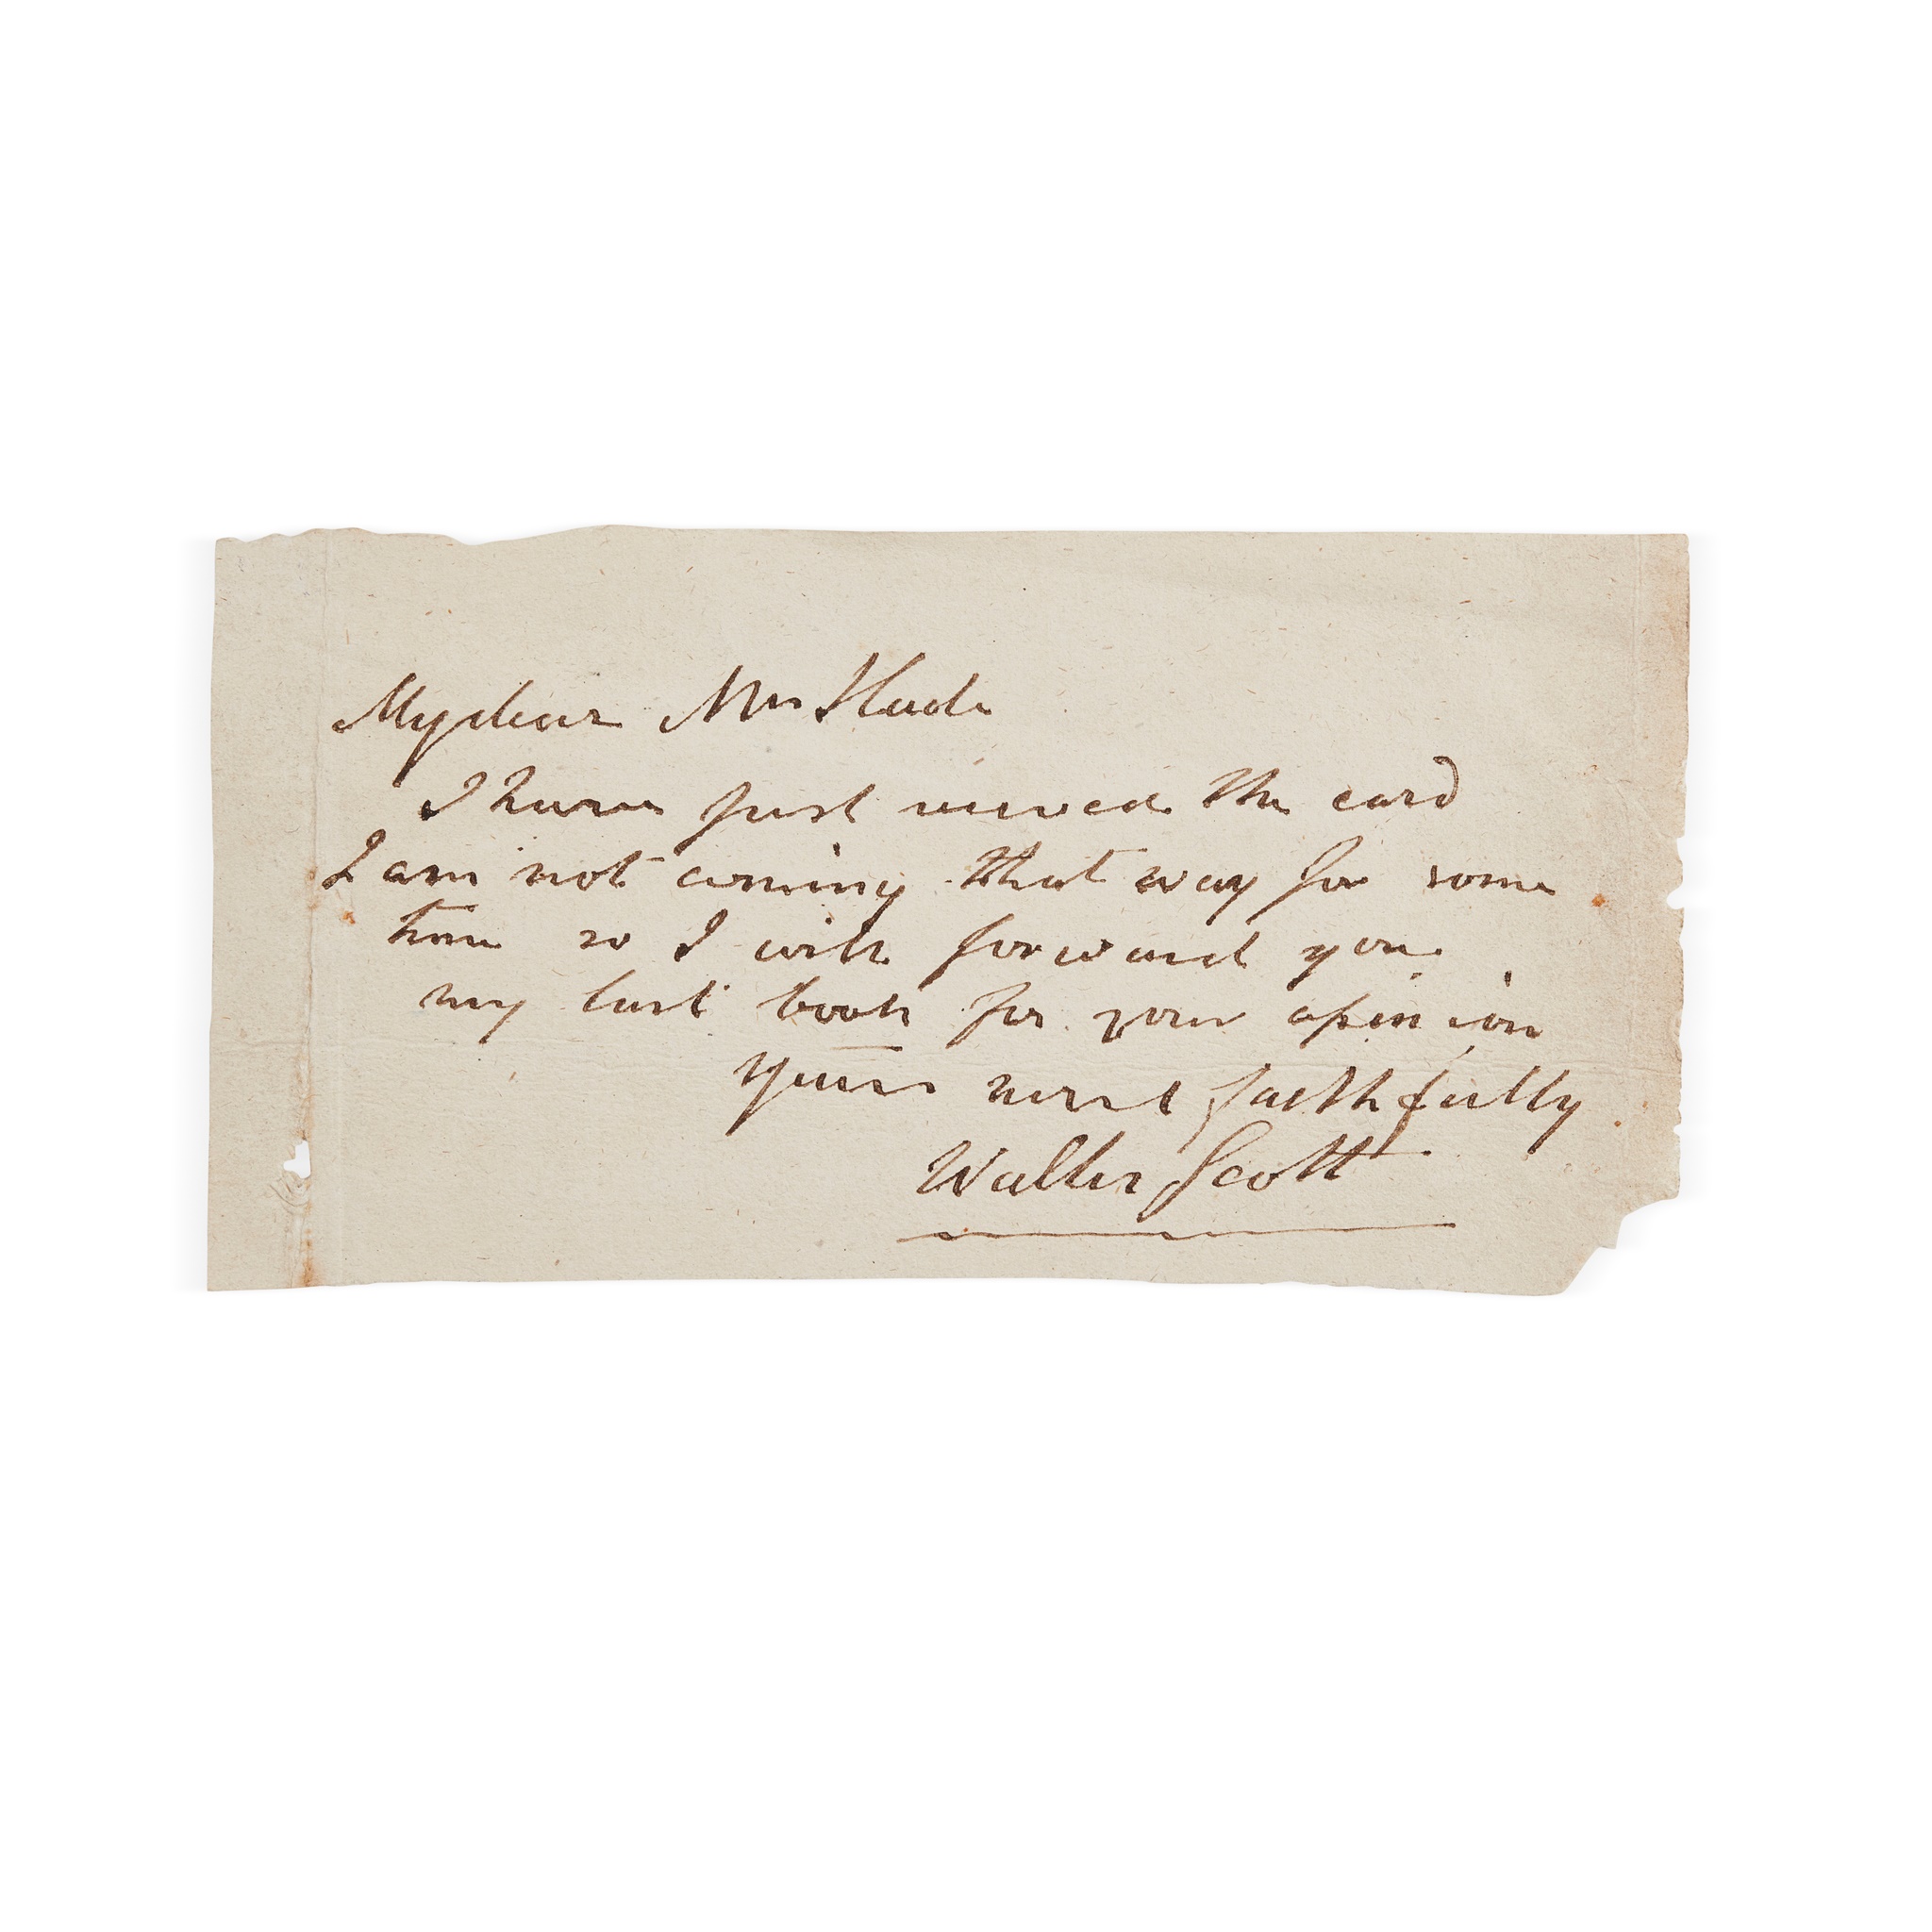 My dear Mrs
I have just received the card
I am not coming that way for some
time so I will forward you
my last book for your opinion
Yours most faithfully
Walter Scott